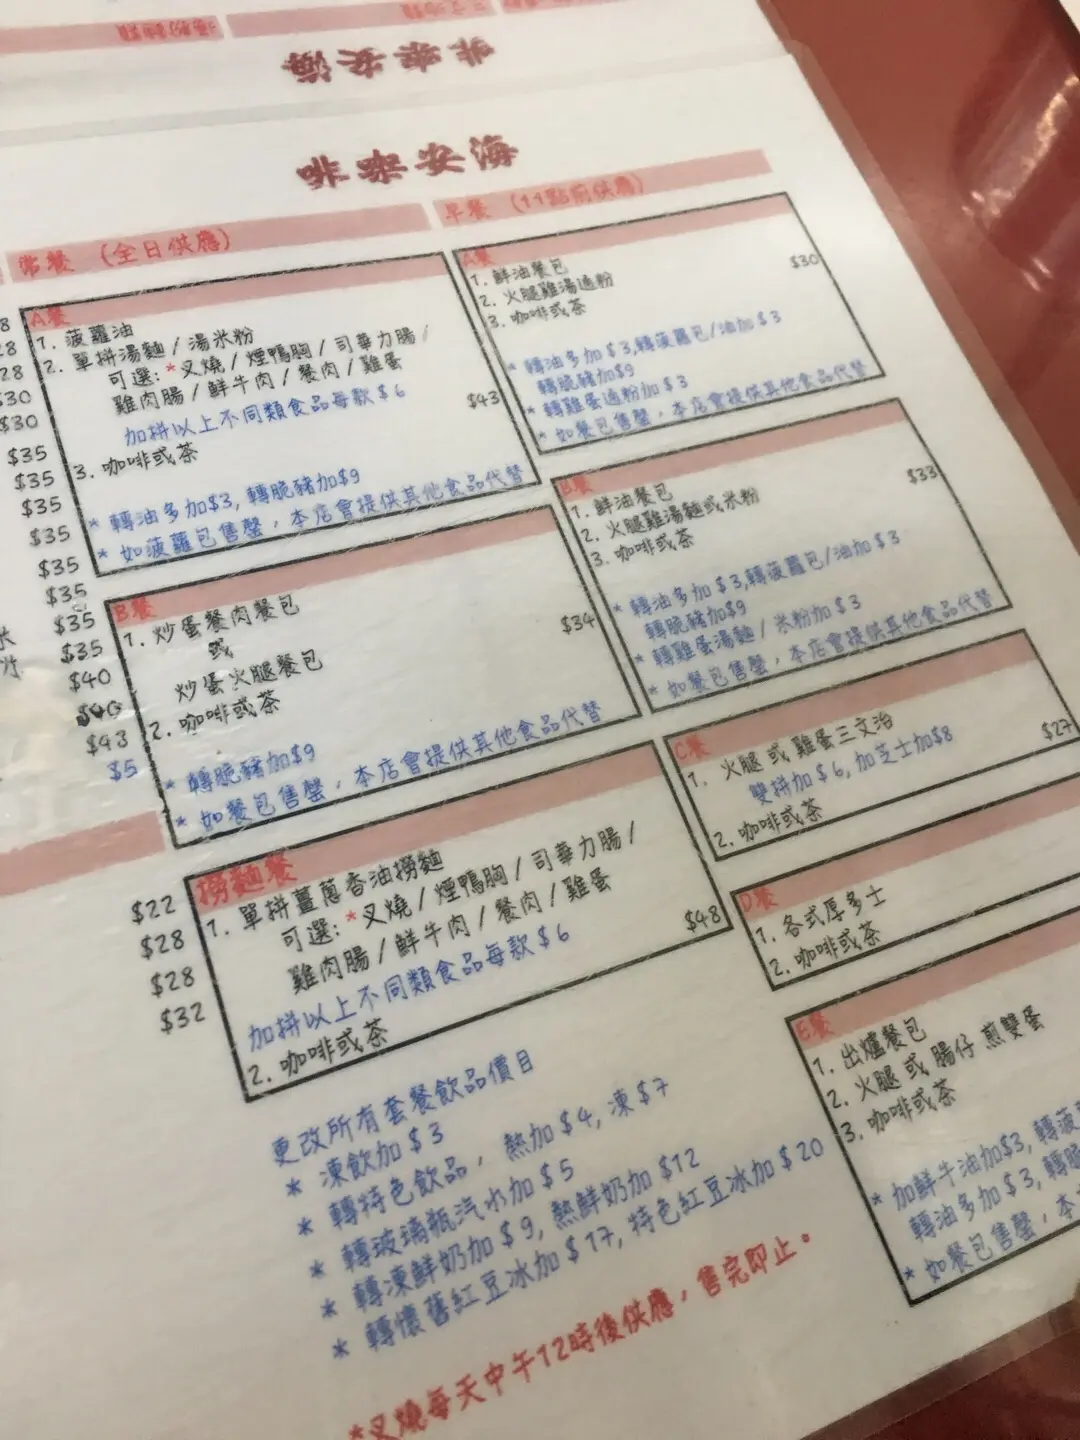 海安咖啡
海安咖啡
常餐 (全日供應)
A餐
1. 菠蘿油
2. 單拼湯麵 / 湯米粉
可選: *叉燒 / 煙鴨胸 / 司華力腸 /
雞肉腸 / 鮮牛肉 / 餐肉 / 雞蛋
加拼以上不同類食品每款 $6
$43
3. 咖啡或茶
* 轉油多加$3, 轉脆豬加$9
* 如菠蘿包售罄，本店會提供其他食品代替
B餐
1. 炒蛋餐肉餐包
或
炒蛋火腿餐包
$34
2. 咖啡或茶
* 轉脆豬加$9
* 如餐包售罄，本店會提供其他食品代替
撈麵餐
1. 單拼薑蔥香油撈麵
可選: *叉燒 / 煙鴨胸 / 司華力腸 /
雞肉腸 / 鮮牛肉 / 餐肉 / 雞蛋
$48
加拼以上不同類食品每款 $6
2. 咖啡或茶
更改所有套餐飲品價目
* 凍飲加 $3
* 轉特色飲品，熱加 $4, 凍 $7
* 轉玻璃瓶汽水加 $5
* 轉凍鮮奶加 $9, 熱鮮奶加 $12
* 轉懷舊紅豆冰加 $17, 特色紅豆冰加 $20
*叉燒每天中午12時後供應，售完即止。
早餐 (11點前供應)
A餐
$30
1. 鮮油餐包
2. 火腿雞湯通粉
3. 咖啡或茶
* 轉油多加 $3,轉菠蘿包/油加 $3
轉脆豬加$9
* 轉雞蛋通粉加 $3
* 如餐包售罄，本店會提供其他食品代替
B餐
$33
1. 鮮油餐包
2. 火腿雞湯麵或米粉
3. 咖啡或茶
* 轉油多加 $3,轉菠蘿包/油加 $3
轉脆豬加$9
* 轉雞蛋湯麵 / 米粉加 $3
* 如餐包售罄，本店會提供其他食品代替
C餐
1. 火腿 或 雞蛋三文治
$27
雙拼加 $6, 加芝士加$8
2. 咖啡或茶
D餐
1. 各式厚多士
2. 咖啡或茶
E餐
1. 出爐餐包
2. 火腿 或 腸仔 煎雙蛋
3. 咖啡或茶
* 加鮮牛油加$3, 轉菠
轉油多加 $3, 轉脆
* 如餐包售罄，本
$30
$30
$35
$35
$35
$35
$35
$35
$35
$35
$40
$43
$5
$22
$28
$28
$32